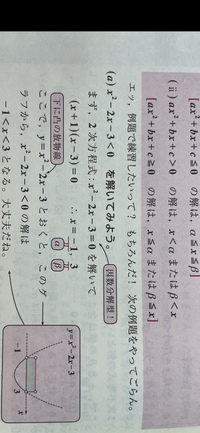 [ax²+bx+c≦0 の解は、α≦x≦β]
(ii) ax²+bx+c>0 の解は、x<α または β<x
[ax²+bx+c≧0 の解は、x≦α または β≦x]
エッ、例題で練習したいって? もちろんだ! 次の例題をやってごらん。
(a) x²-2x-3<0 を解いてみよう。 因数分解型!
まず、2次方程式: x²-2x-3=0 を解いて
(x+1)(x-3)=0 ∴x=-1, 3
α β
下に凸の放物線
ここで、y=x²-2x-3 とおくと、このグ
ラフから、x²-2x-3<0 の解は
-1<x<3 となる。大丈夫だね。
y=x²-2x-3
-1 3 x